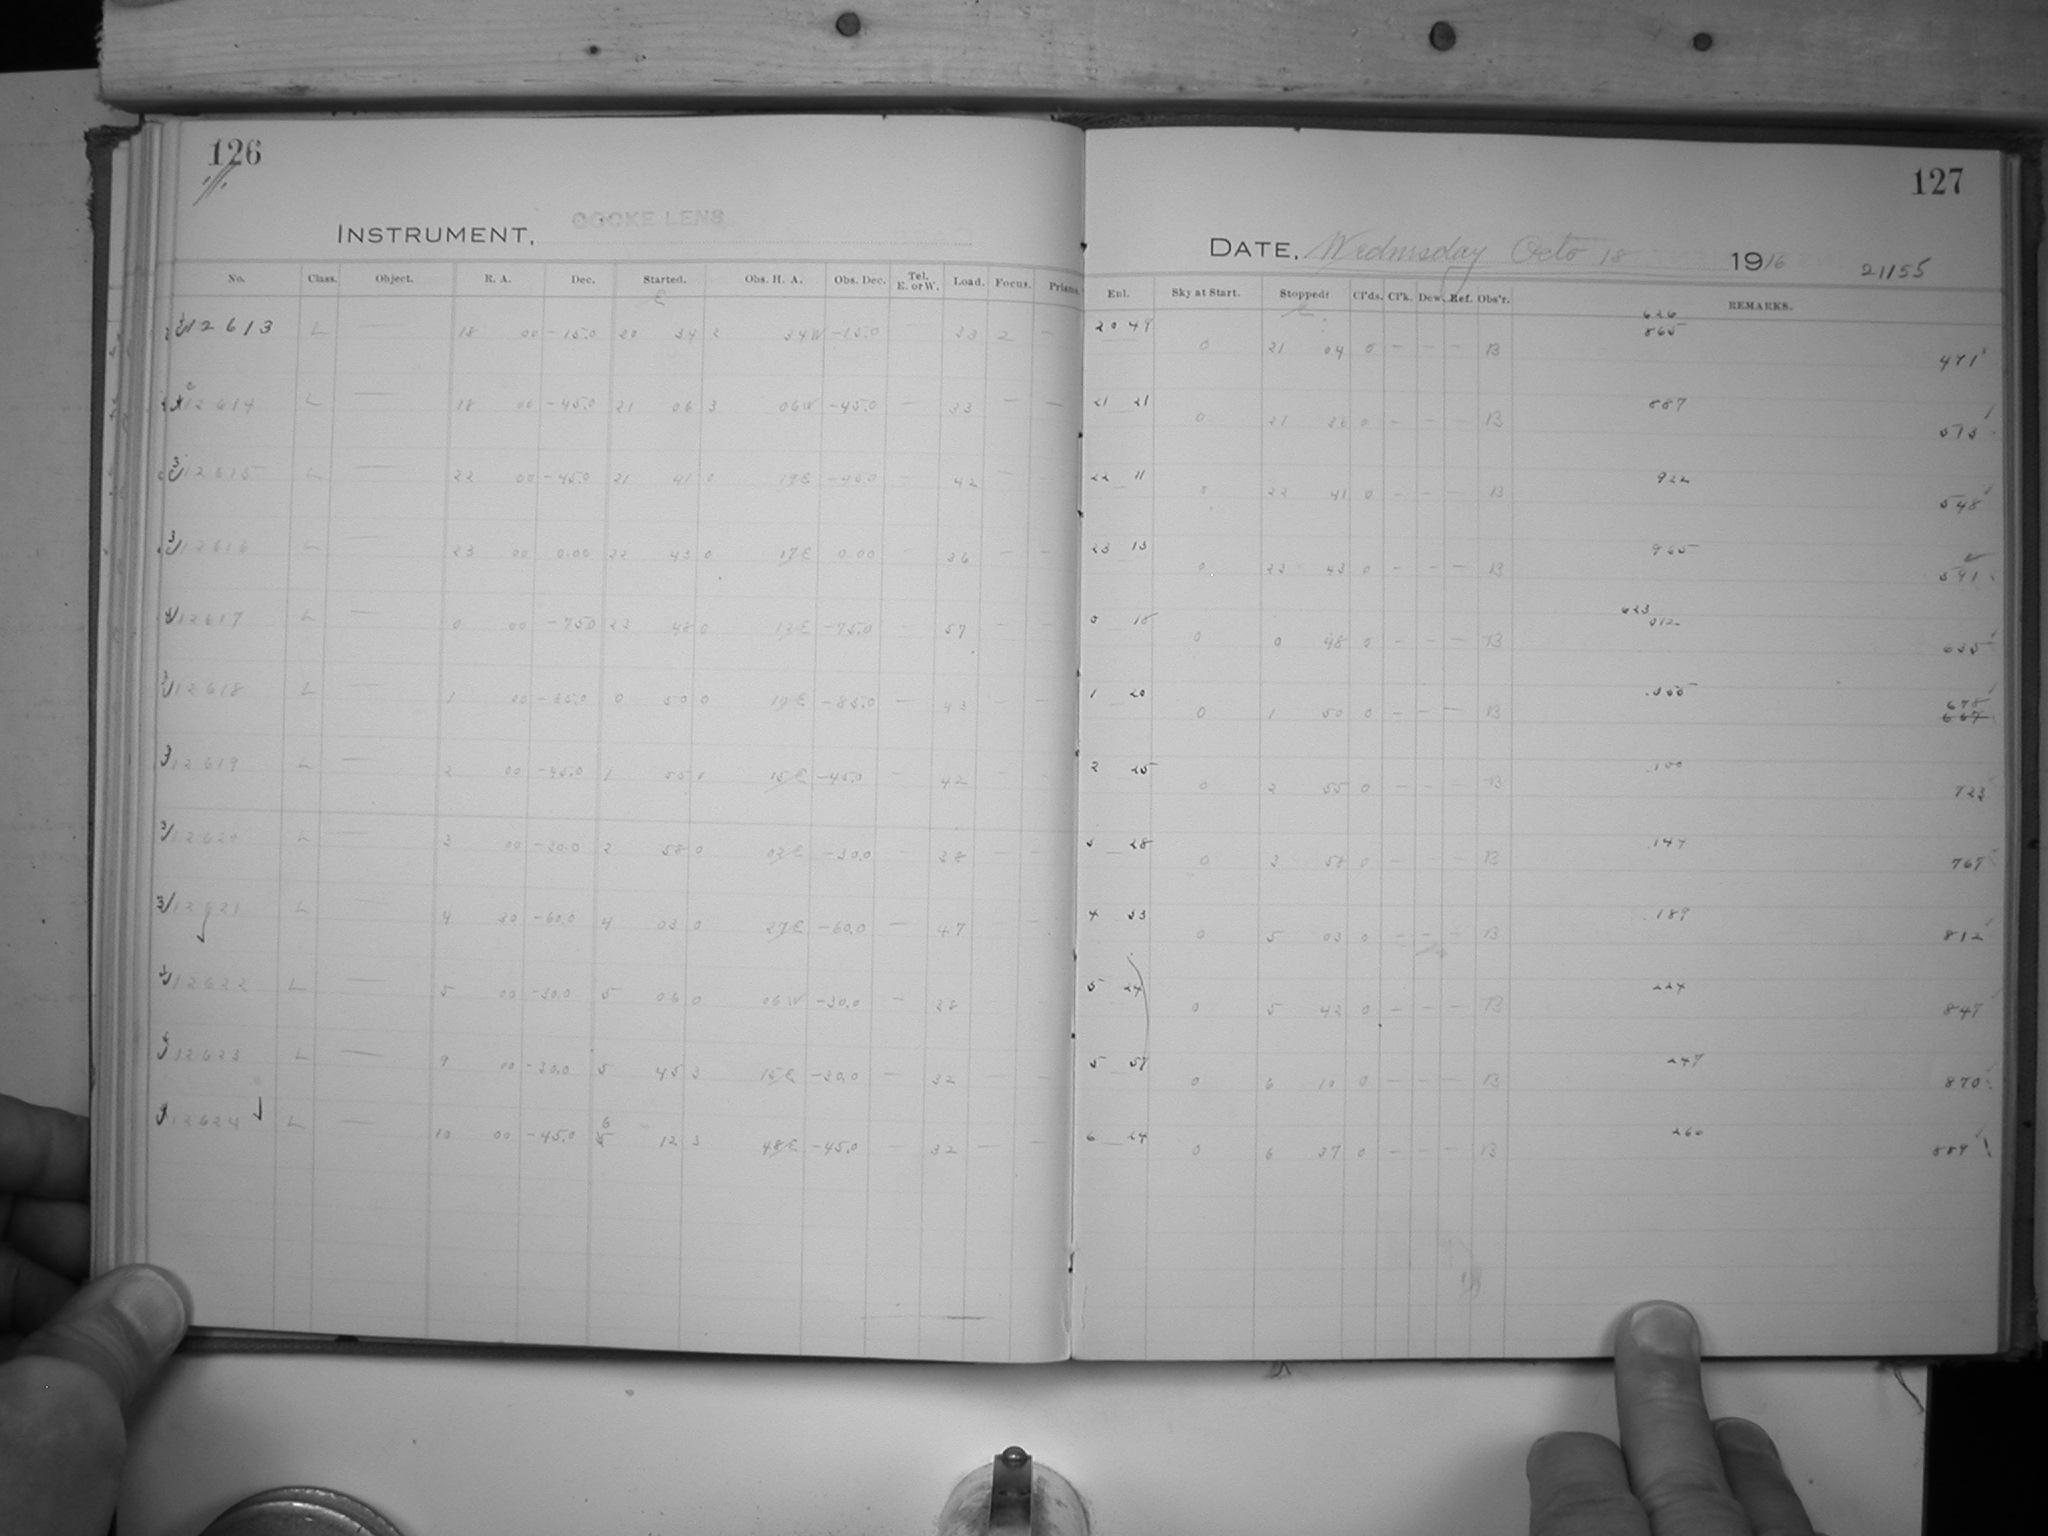 126
127
INSTRUMENT, COOKE LENS
DATE, Wednesday Octo 18 1916 21155
No. Class. Object. R. A. Dec. Started. Obs. H. A. Obs. Dec. Tel. E. or W. Load. Focus. Prisms. Enl. Sky at Start. Stopped: Cl'ds. Cl'k. Dew. Ref. Obs'r. REMARKS.
E
626
12613 L — 18 00 -15.0 20 34 2 34W -15.0 33 2 — 20 49 0 21 04 0 — — — B 865 471
12614 L — 18 00 -45.0 21 06 3 06W -45.0 — 33 — — 21 21 0 21 36 0 — — — B 887 513
12615 L — 22 00 -45.0 21 41 0 19E -45.0 — 42 — 22 11 0 22 41 0 — — — B 922 548
12616 L — 23 00 0.00 22 43 0 17E 0.00 — 36 — — 23 13 0 23 43 0 — — — B 965 591
12617 L — 0 00 -75.0 23 48 0 12E -75.0 — 57 — — 0 18 0 0 48 0 — — — B 623 012 635
12618 L — 1 00 -85.0 0 50 0 10E -85.0 — 43 — — 1 20 0 1 50 0 — — — B 055 678
12619 L — 2 00 -45.0 1 55 0 15E -45.0 — 42 — — 2 25 0 2 55 0 — — — B .100 723
12620 L — 3 00 -30.0 2 58 0 02E -30.0 — 38 — — 3 28 0 3 58 0 — — — B .144 767
12621 L — 4 30 -60.0 4 03 0 27E -60.0 — 47 — — 4 33 0 5 03 0 — — — B .189 812
12622 L — 5 00 -30.0 5 06 0 06W -30.0 — 38 5 24 0 5 42 0 — — — B 224 847
12623 L — 9 00 -30.0 5 45 3 15E -30.0 — 32 — 5 57 0 6 10 0 — — — B 247 870
12624 L — 10 00 -45.0 6 12 3 48E -45.0 — 32 — — 6 24 0 6 37 0 — — — B 266 889